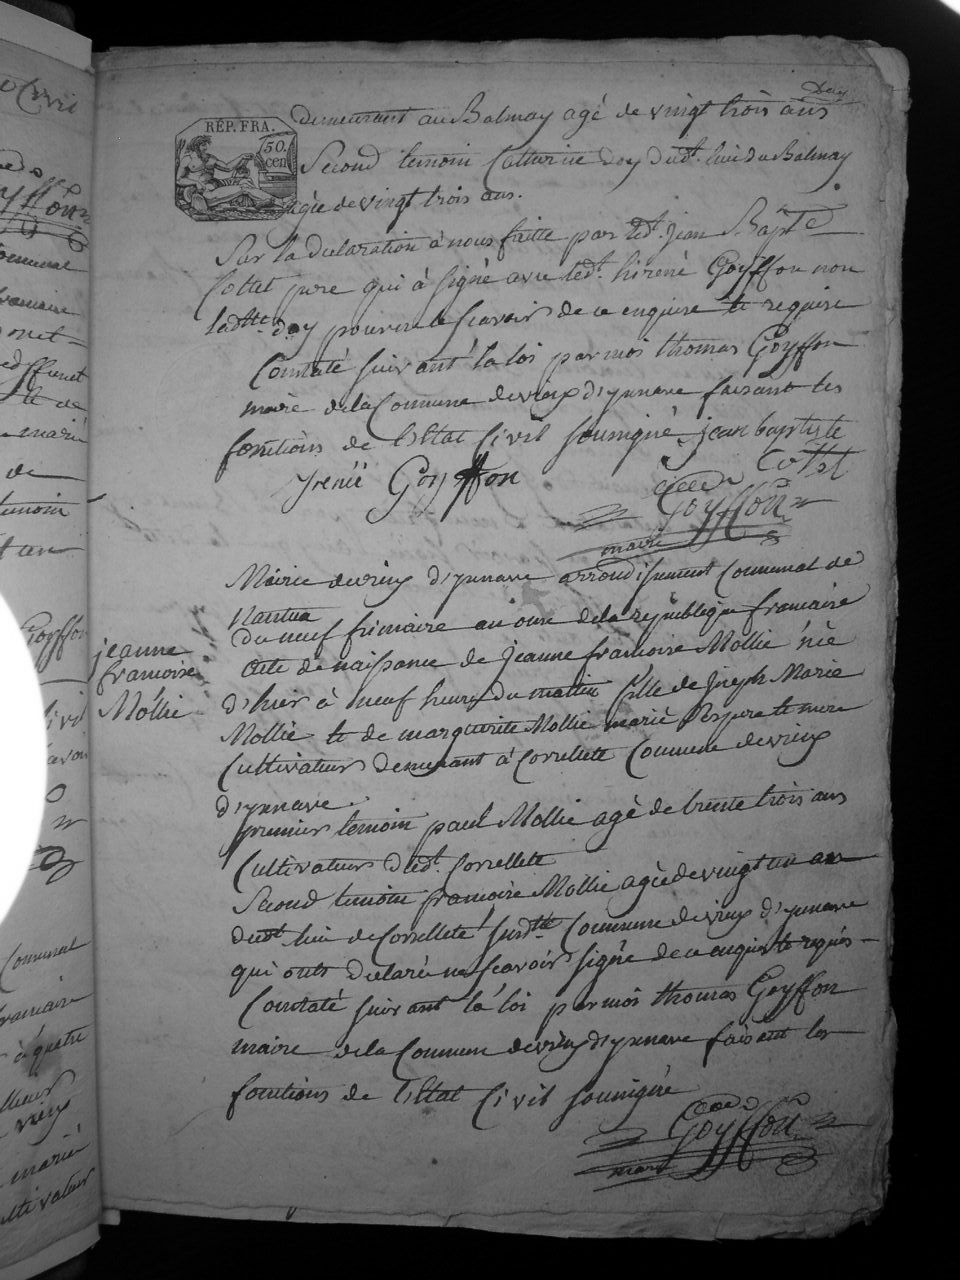 Day
demeurant au Balmay agé de vingt trois ans
RÉP. FRA.
50. cen
Second temoin Catterine Day dudt. lieu du Balmay
agée de vingt trois ans.
Sur la declaration à nous faitte par ledt. jean Bapte
Collet pere qui à signé avec ledt. hirené Goyffon non
ladtte. day pour ne le scavoir de ce enquire et require
Constaté suivant la loi par moi thomas Goyffon
maire de la Commune de vieux d'yzenave faisant les
fonctions de l'Etat Civil soussigné jean baptiste
Collet
Yrenii Goyffon
Goyffon
maire
Mairie de vieux d'yzenave arrondissement Communal de
Nantua
Du neuf frimaire an onze de la republique francaise
jeanne
francoise
Mollie
acte de naissance de Jeanne francoise Mollie née
d'hier à neuf heures du mattin fille de Joseph Marie
Mollie et de marguerite Mollie mariés ses pere et mere
Cultivateurs demeurant à Corcellete Commune de vieux
d'yzenave
premier temoin paul Mollie agé de trente trois ans
Cultivateur dudt. Corcellete
Second temoin francoise Mollie agée de vingt un an
dudt. lieu de Corcellete susdtte Commune de vieux d'yzenave
qui onts declaré ne scavoir signé de ce enquis et requis -
Constaté suivant la loi par moi thomas Goyffon
maire de la Commune de vieux d'yzenave faisant les
fonctions de l'Etat Civil soussigné
Goyffon
maire